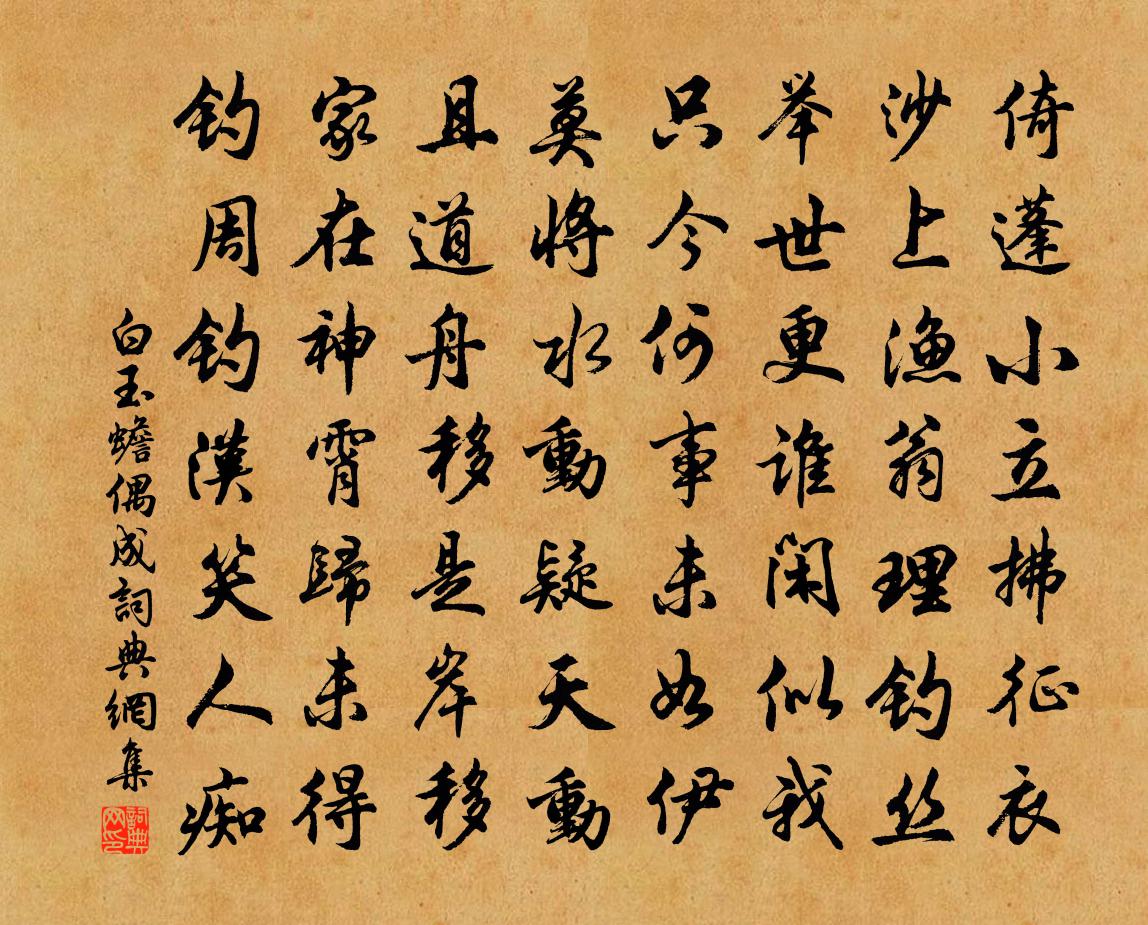 倚蓬小立拂征衣
沙上渔翁理钓丝
举世更谁闲似我
只今何事未如伊
莫将水动疑天动
且道舟移是岸移
家在神霄归未得
钓周钓汉笑人痴
白玉蟾偶成詞典網集
詞典网印